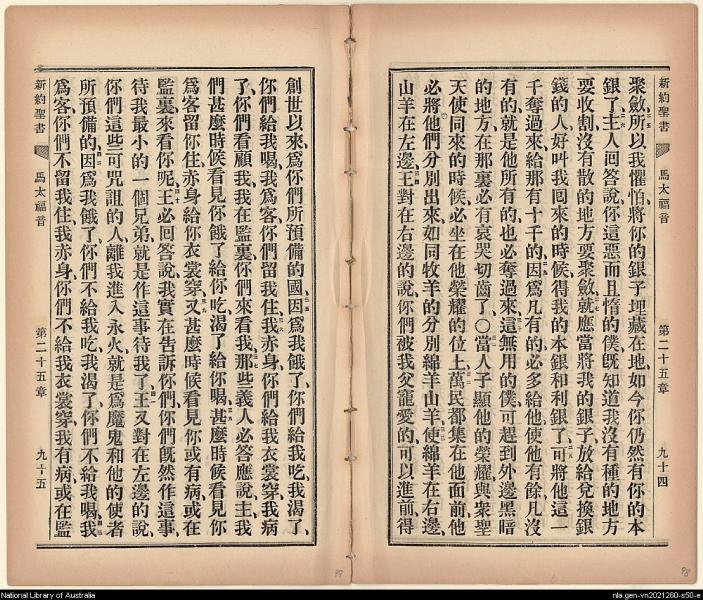 新約聖書 馬太福音 第二十五章 九十四
聚斂、所以我懼怕、將你的銀子埋藏在地、如今你仍然有你的本
銀了、主人回答說、你這惡而且惰的僕、旣知道我沒有種的地方
要收割、沒有散的地方要聚斂、就應當將我的銀子放給兌換銀
錢的人、好叫我回來的時候、得我的本銀和利銀了、可將他這一
千奪過來、給那有十千的、因爲凡有的、必多給他、使他有餘、凡沒
有的、就是他所有的、也必奪過來、這無用的僕、可趕到外邊黑暗
的地方、在那裏必有哀哭切齒了、○當人子顯他的榮耀、與衆聖
天使同來的時候、必坐在他榮耀的位上、萬民都集在他面前、他
必將他們分別出來、如同牧羊的分別綿羊山羊、使綿羊在右邊、
山羊在左邊、王對在右邊的說、你們被我父寵愛的、可以進前得
創世以來、爲你們所預備的國、因爲我餓了、你們給我吃、我渴了、
你們給我喝、我爲客、你們留我住、我赤身、你們給我衣裳穿、我病
了、你們看顧我、我在監裏、你們來看我、那些義人必答應說、主、我
們甚麼時候看見你餓了給你吃、渴了給你喝、甚麼時候看見你
爲客留你住、赤身給你衣裳穿、又甚麼時候看見你或有病、或在
監裏來看你呢、王必回答說、我實在告訴你們、你們旣然作這事、
待我最小的一個兄弟、就是作這事待我了、王又對在左邊的說、
你們這些可咒詛的人、離我進入永火、就是爲魔鬼和他的使者
所預備的、因爲我餓了、你們不給我吃、我渴了、你們不給我喝、我
爲客、你們不留我住、我赤身、你們不給我衣裳穿、我有病、或在監
新約聖書 馬太福音 第二十五章 九十五
99
98
National Library of Australia
nla.gen-vn2021260-s50-e